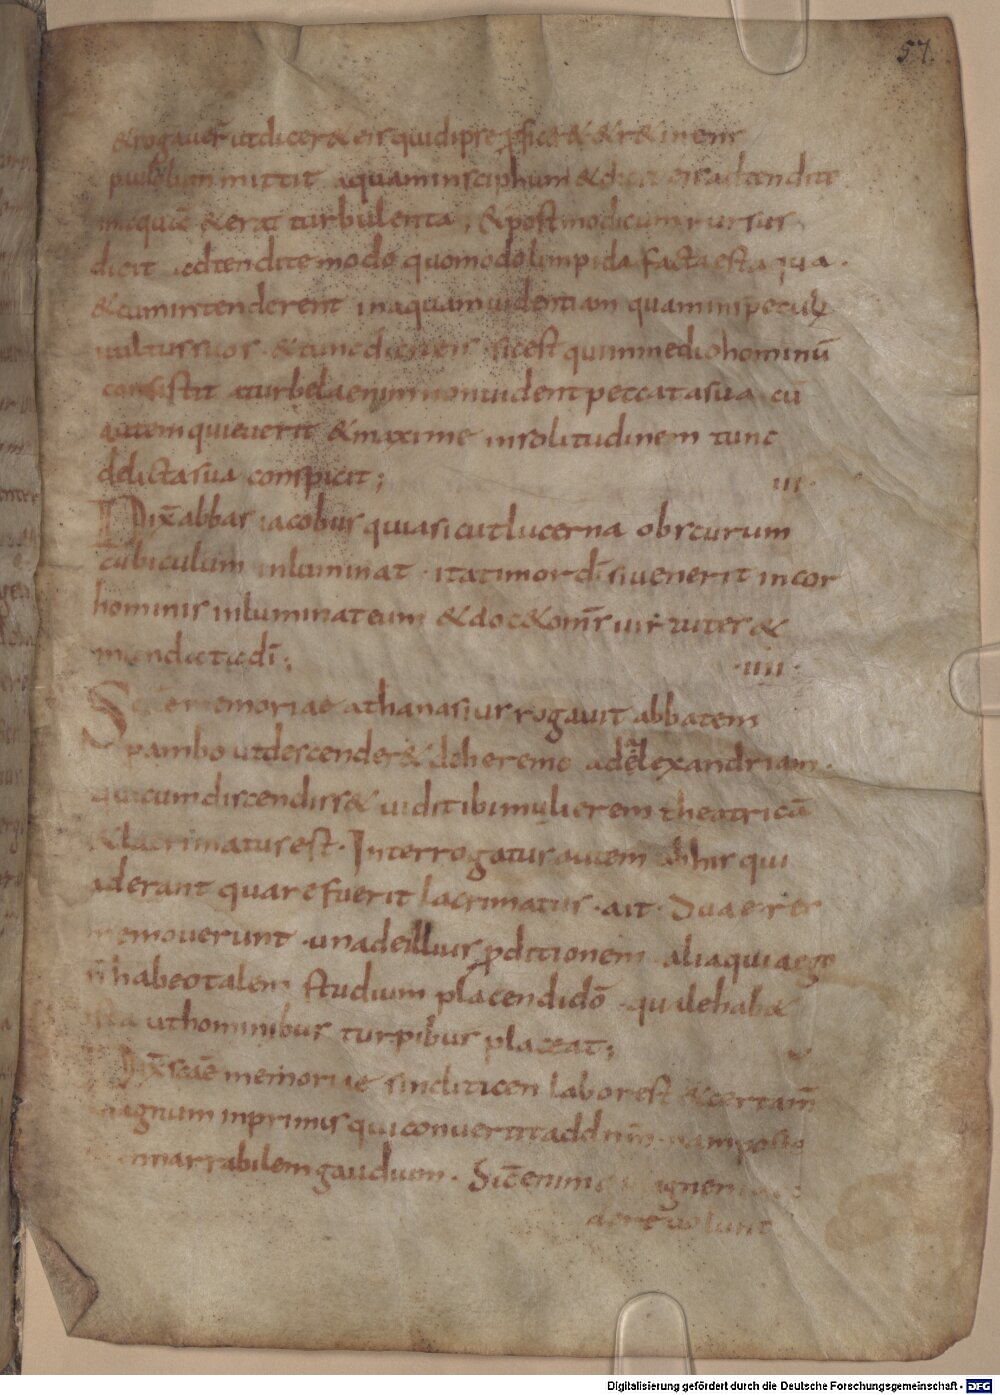 57.
& rogauer̄ ut dicer& eis quid ipse ꝓfecer& & r& inens
puisillum mittit aquam in sciphum & dicit eis adtendite
in aquā & erat turbulenta; & post modicum rursus
dicit adtendite modo quomodo limpida facta est aqua.
& cum intenderent in aquam uident tam quam in speculū
uultus suos. & tunc dicit eis sic est qui in medio hominū
consistit a turbela enim non uident peccata sua cū
autem quieuerit & maxime in solitudinem tunc
delicta sua conspicit;
III.
Dix̄ abbas iacobus quia sicut lucerna obscurum
cubiculum inluminat. ita timor dī si uenerit in cor
hominis inluminat eum & doc& om̄s uirtutes &
mandata dī;
.IIII.
Sc̄ae memoriae athanasius rogauit abbatem
pambo ut descender& de heremo ad alexandriam.
qui cum discendiss& uidit ibi mulierem theatricā
& lacrimatus est. Interrogatus autem ab his qui
aderant quare fuerit lacrimatus. ait. Duae res
me mouerunt. una de illius ꝑditionem. alia quia ego
n̄ habeo talem studium placendi dō. quale hab&
ista ut hominibus turpibus placeat;
V
Dix̄ sc̄ae memoriae sinditicen labor est & certam̄
magnum inprimis qui conuertit ad dn̄m. nam postea
inenarrabilem gaudium. Sic enim ignem
dere uolunt
Digitalisierung gefördert durch die Deutsche Forschungsgemeinschaft - DFG